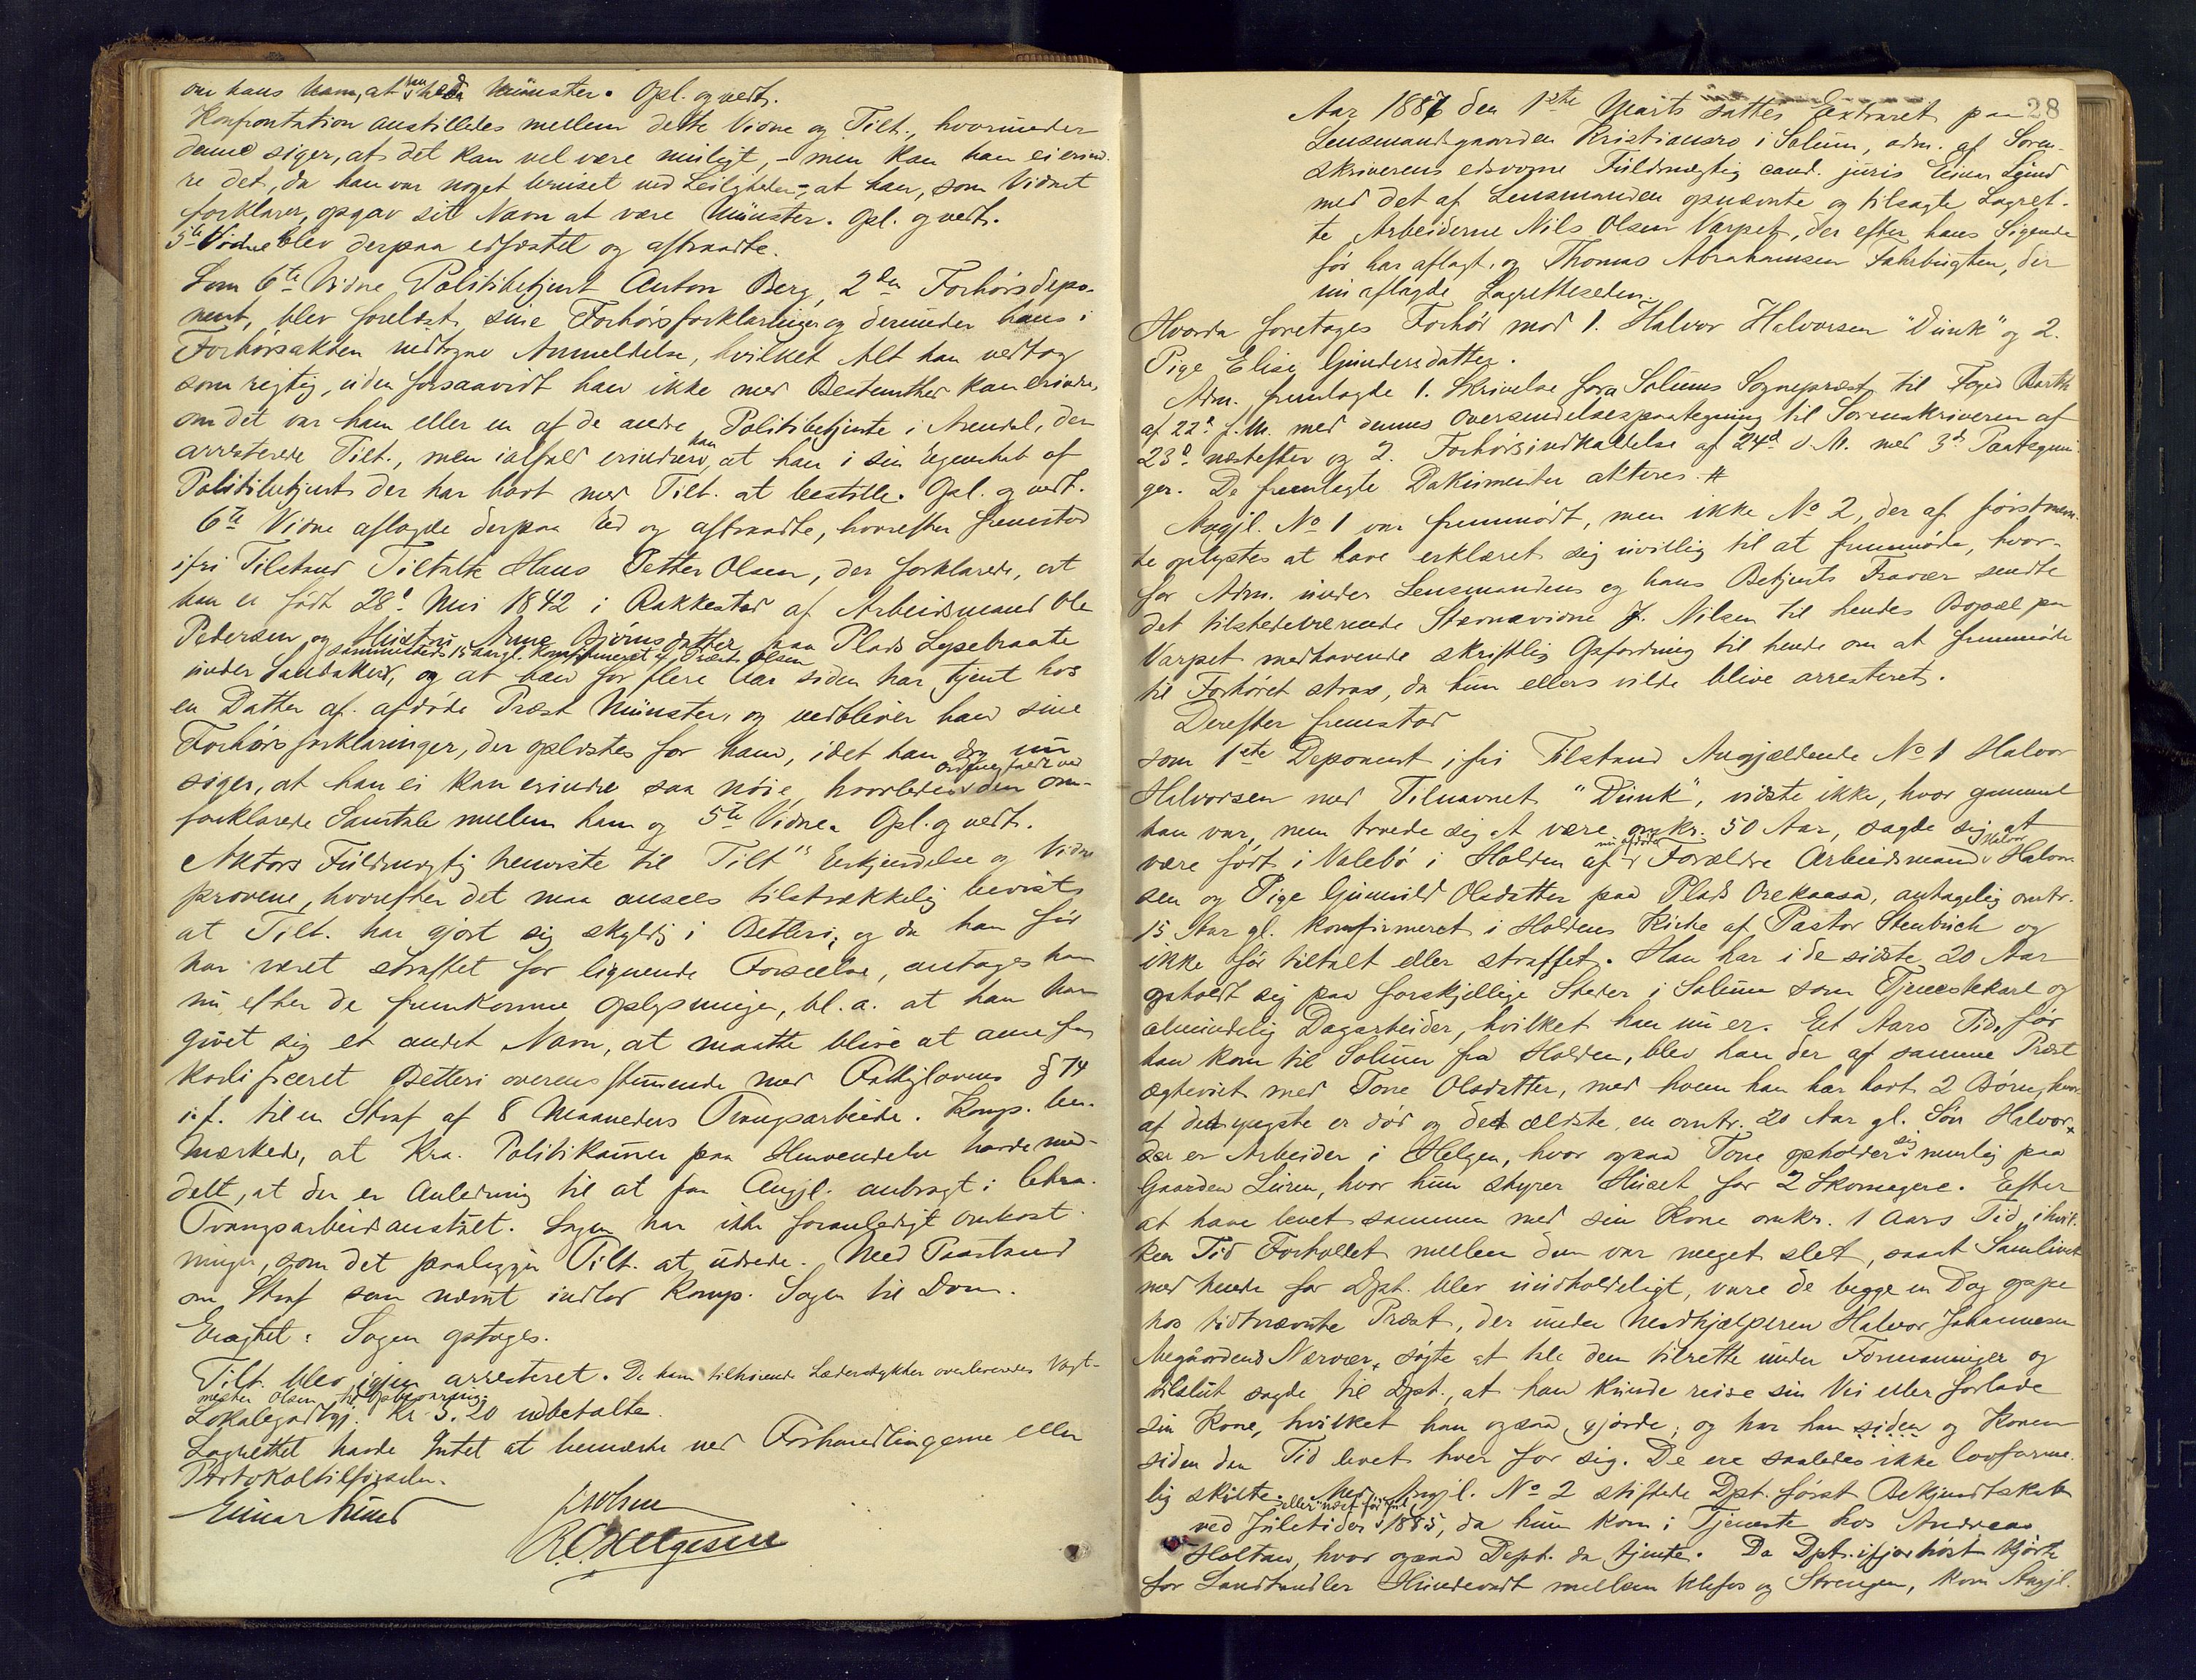 om hans Navn, at han hed Münster. Opl. og vedt.
Konfrontation anstilledes mellem dette Vidne og Tilt., hvorunder
denne siger, at det kan vel være muligt, - men kan han ei erind-
re det, da han var noget beruset ved Leiligheden -, at han, som Vidnet
forklarer, opgav sit Navn at være Münster. Opl. og vedt.
5te Vidne blev derpaa edfæstet og aftraadte.
Som 6te Vidne Politibetjent Anton Berg, 2den Forhørsdepo-
nent, blev forelæst sine Forhørsforklaringer og derunder hans i
Forhørsakten indtagne Anmeldelse, hvilket Alt han vedtog
som rigtig, uden forsaavidt han ikke med Bestemthed kan erindre,
om det var ham eller en af de andre Politibetjente i Arendal, der
arresterede Tilt., men ialfald erindrer han, at han i sin Egenskab af
Politibetjent der har havt med Tilt. at bestille. Opl. og vedt.
6te Vidne aflagde derpaa Ed og aftraadte, hvorefter fremstod
i fri Tilstand Tiltalte Hans Petter Olsen, der forklarede, at
han er født 28de Mai 1842 i Rakkestad af Arbeidsmand Ole
Pedersen og Hustru Anne Bjørnsdatter paa Plads Lysebraate
sammesteds 15 Aar gl. konfirmeret af Præst Olsen
under Sandaker, og at han for flere Aar siden har tjent hos
en Datter af afdøde Præst Münster, og vedbliver han sine
Forhørsforklaringer, der oplæstes for ham, idet han dog nu
siger, at han ei kan erindre saa nøie, hvorledes Ordene faldt ved den om-
forklarede Samtale mellem ham og 5te Vidne. Opl. og vedt.
Aktors Fuldmægtig henviste til Tilt's Erkjendelse og Vidne
provene, hvorefter det maa ansees tilstrækkelig bevist,
at Tilt. har gjort sig skyldig i Betleri, og da han før
har været straffet for lignende Forseelse, antages han
nu, efter de fremkomne Oplysninger, bl. a. at han har
givet sig et andet Navn, at maatte blive at anse for
kvalificeret Betleri overensstemmende med Fattiglovens § 74
i. f. til en Straf af 8 Maaneders Tvangsarbeide. Komp. be-
mærkede, at Kra. Politikammer paa Henvendelse havde med-
delt, at der er Anledning til at faa Angjl. anbragt i
Tvangsarbeidsanstalt. Sagen har ikke foranlediget Omkost-
ninger, som det paaligger Tilt. at udrede. Med Paastand
om Straf som nævnt indlod Komp. Sagen til Dom.
Eragtet: Sagen optages.
Tilt. blev igjen arresteret. De ham tilhørende Læderstykker overleveredes Vagt-
mester Olsen til Opbevaring.
Lokalegodtgj. Kr. 3.20 udbetalte.
Lagrettet havde Intet at bemærke ved Forhandlingerne eller
Protokoltilførselen.
Einar Lund
R. O. Helgesen
28
Aar 1887 den 1ste Marts sattes Extraret paa
Lensmandsgaarden Kristiansro i Solum, adm. af Soren-
skriverens edsvorne Fuldmægtig cand. juris Einar Lund
med det af Lensmanden opnævnte og tilsagte Lagret-
te Arbeiderne Nils Olsen Varpet, der efter hans Sigende
før har aflagt, og Thomas Abrahamsen Fahrbugten, der
nu aflagde Lagretteseden.
Hvorda foretages Forhør mod 1. Halvor Halvorsen "Dunk" og 2.
Pige Elise Gundersdatter.
Adm. fremlagde 1. Skrivelse fra Solums Sogneprest til Foged Barth
af 22de f. M. med dennes Oversendelsespaategning til Sorenskriveren af
23de næstefter og 2. Forhørsindkaldelse af 24de s. M. med 3de Paategnin-
ger. De fremlagte Dokumenter akteres. #
Angjl. No 1 var fremmødt, men ikke No 2, der af førstnævn-
te oplystes at have erklæret sig uvillig til at fremmøde, hvor-
for Adm. under Lensmandens og hans Betjents Fravær sendte
det tilstedeværende Stævnevidne J. Nilsen til hendes Bopæl paa
Varpet medhavende skriftlig Opfordring til hende om at fremmøde
til Forhøret strax, da hun ellers vilde blive arresteret.
Derefter fremstod
som 1ste Deponent i fri Tilstand Angjældende No 1 Halvor
Halvorsen med Tilnavnet "Dunk", vidste ikke, hvor gammel
han var, men troede sig at være omkr. 50 Aar, sagde sig at
være født i Valebø i Holden af nu afdøde Forældre Arbeidsmand Halvor Halvor-
sen og Pige Gunnild Olsdatter paa Plads Orekaasa, antagelig omtr.
15 Aar gl. konfirmeret i Holdens Kirke af Pastor Stenbuch og
ikke før tiltalt eller straffet. Han har i de sidste 20 Aar
opholdt sig paa forskjellige Steder i Solum som Tjenestekarl og
almindelig Dagarbeider, hvilket han nu er. Et Aars Tid, før
han kom til Solum fra Holden, blev han der af samme Præst
ægteviet med Tone Olsdatter, med hvem han har havt 2 Børn, hvor-
af det yngste er død og det ældste, en omtr. 20 Aar gl. Søn Halvor,
der er Arbeider i Helgen, hvor ogsaa Tone opholder sig nemlig paa
Gaarden Luren, hvor hun styrer Huset for 2 Skomagere. Efter
at have levet sammen med sin Kone omkr. 1 Aars Tid, i hvil-
ken Tid Forholdet mellem dem var meget slet, saaat Samlivet
med hende for Dpt. blev uudholdeligt, vare de begge en Dag oppe
hos sidtnævnte Præst, der under Medhjælperen Halvor Johannesen
Nærvær, søgte at tale dem tilrette under Formaninger og
tilslut sagde til Dpt., at han kunde reise sin Vei eller forlade
sin Kone, hvilket han ogsaa gjorde, og har han siden og Konen
siden den Tid levet hver for sig. De ere saaledes ikke lovforme-
lig skilte. Med Angjl. No 2 stiftede Dpt. først Bekjendtskab
ved Juletider eller næst før Jul 1885, da hun kom i Tjeneste hos Andreas
Holtan, hvor ogsaa Dept. da tjente. Da Dpt. ifjor høst kjørte
for Landhandler Hundevadt mellem Ulefos og Strengen, kom Angjl.